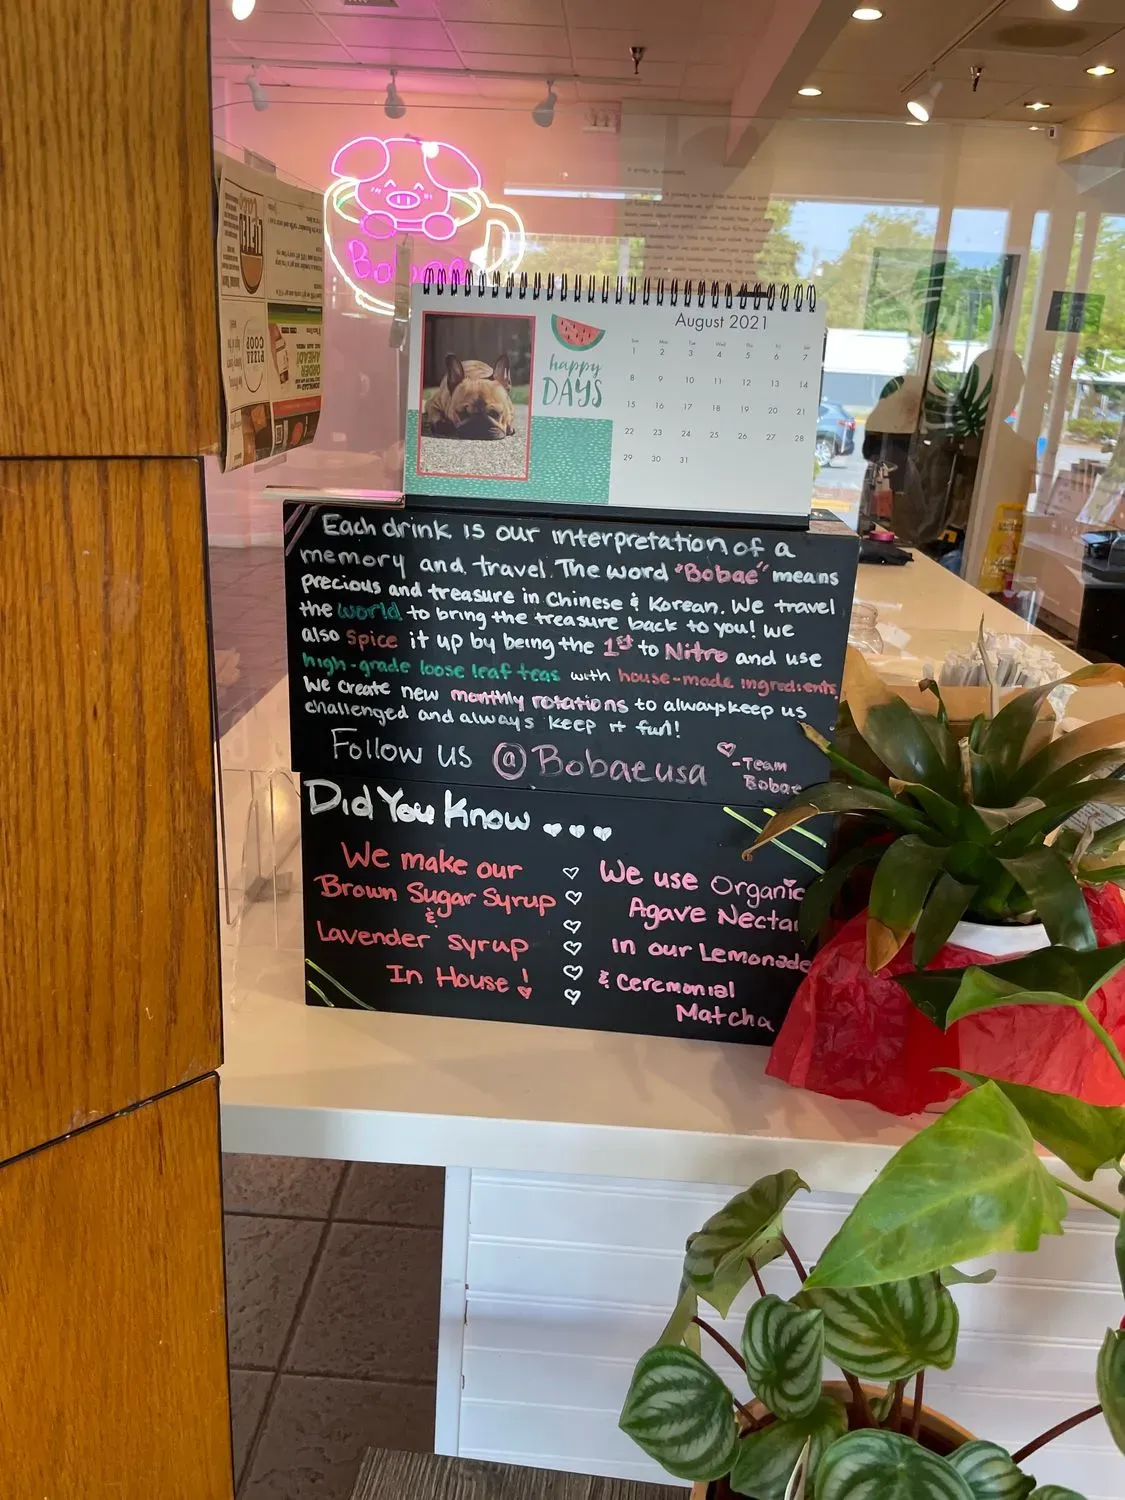 August 2021
happy
DAYS
Sun Mon Tue Wed Thu Fri Sat
1 2 3 4 5 6 7
8 9 10 11 12 13 14
15 16 17 18 19 20 21
22 23 24 25 26 27 28
29 30 31
Each drink is our interpretation of a
memory and travel. The word "Bobae" means
precious and treasure in Chinese & Korean. We travel
the world to bring the treasure back to you! We
also spice it up by being the 1st to Nitro and use
high-grade loose leaf teas with house-made ingredients
We create new monthly rotations to always keep us
challenged and always keep it fun!
Follow us @Bobaeusa
-Team
Bobae
Did You Know...
We make our
Brown Sugar Syrup
&
Lavender Syrup
In House!
We use Organic
Agave Nectar
in our Lemonade
& Ceremonial
Matcha